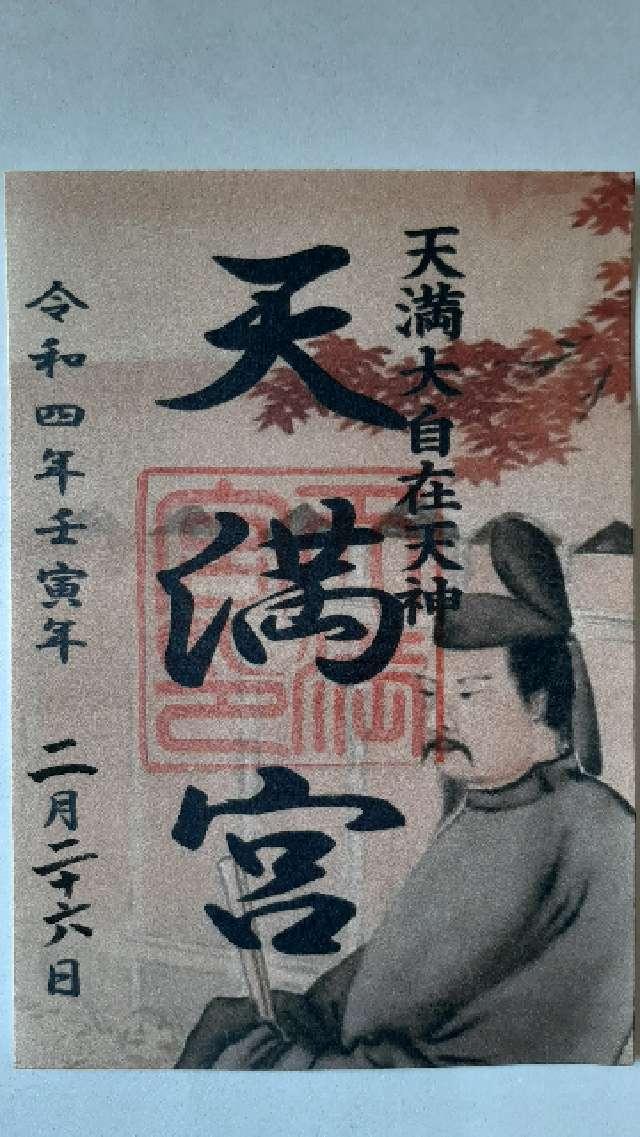 天満大自在天神
天満宮
令和四年壬寅年 二月二十六日